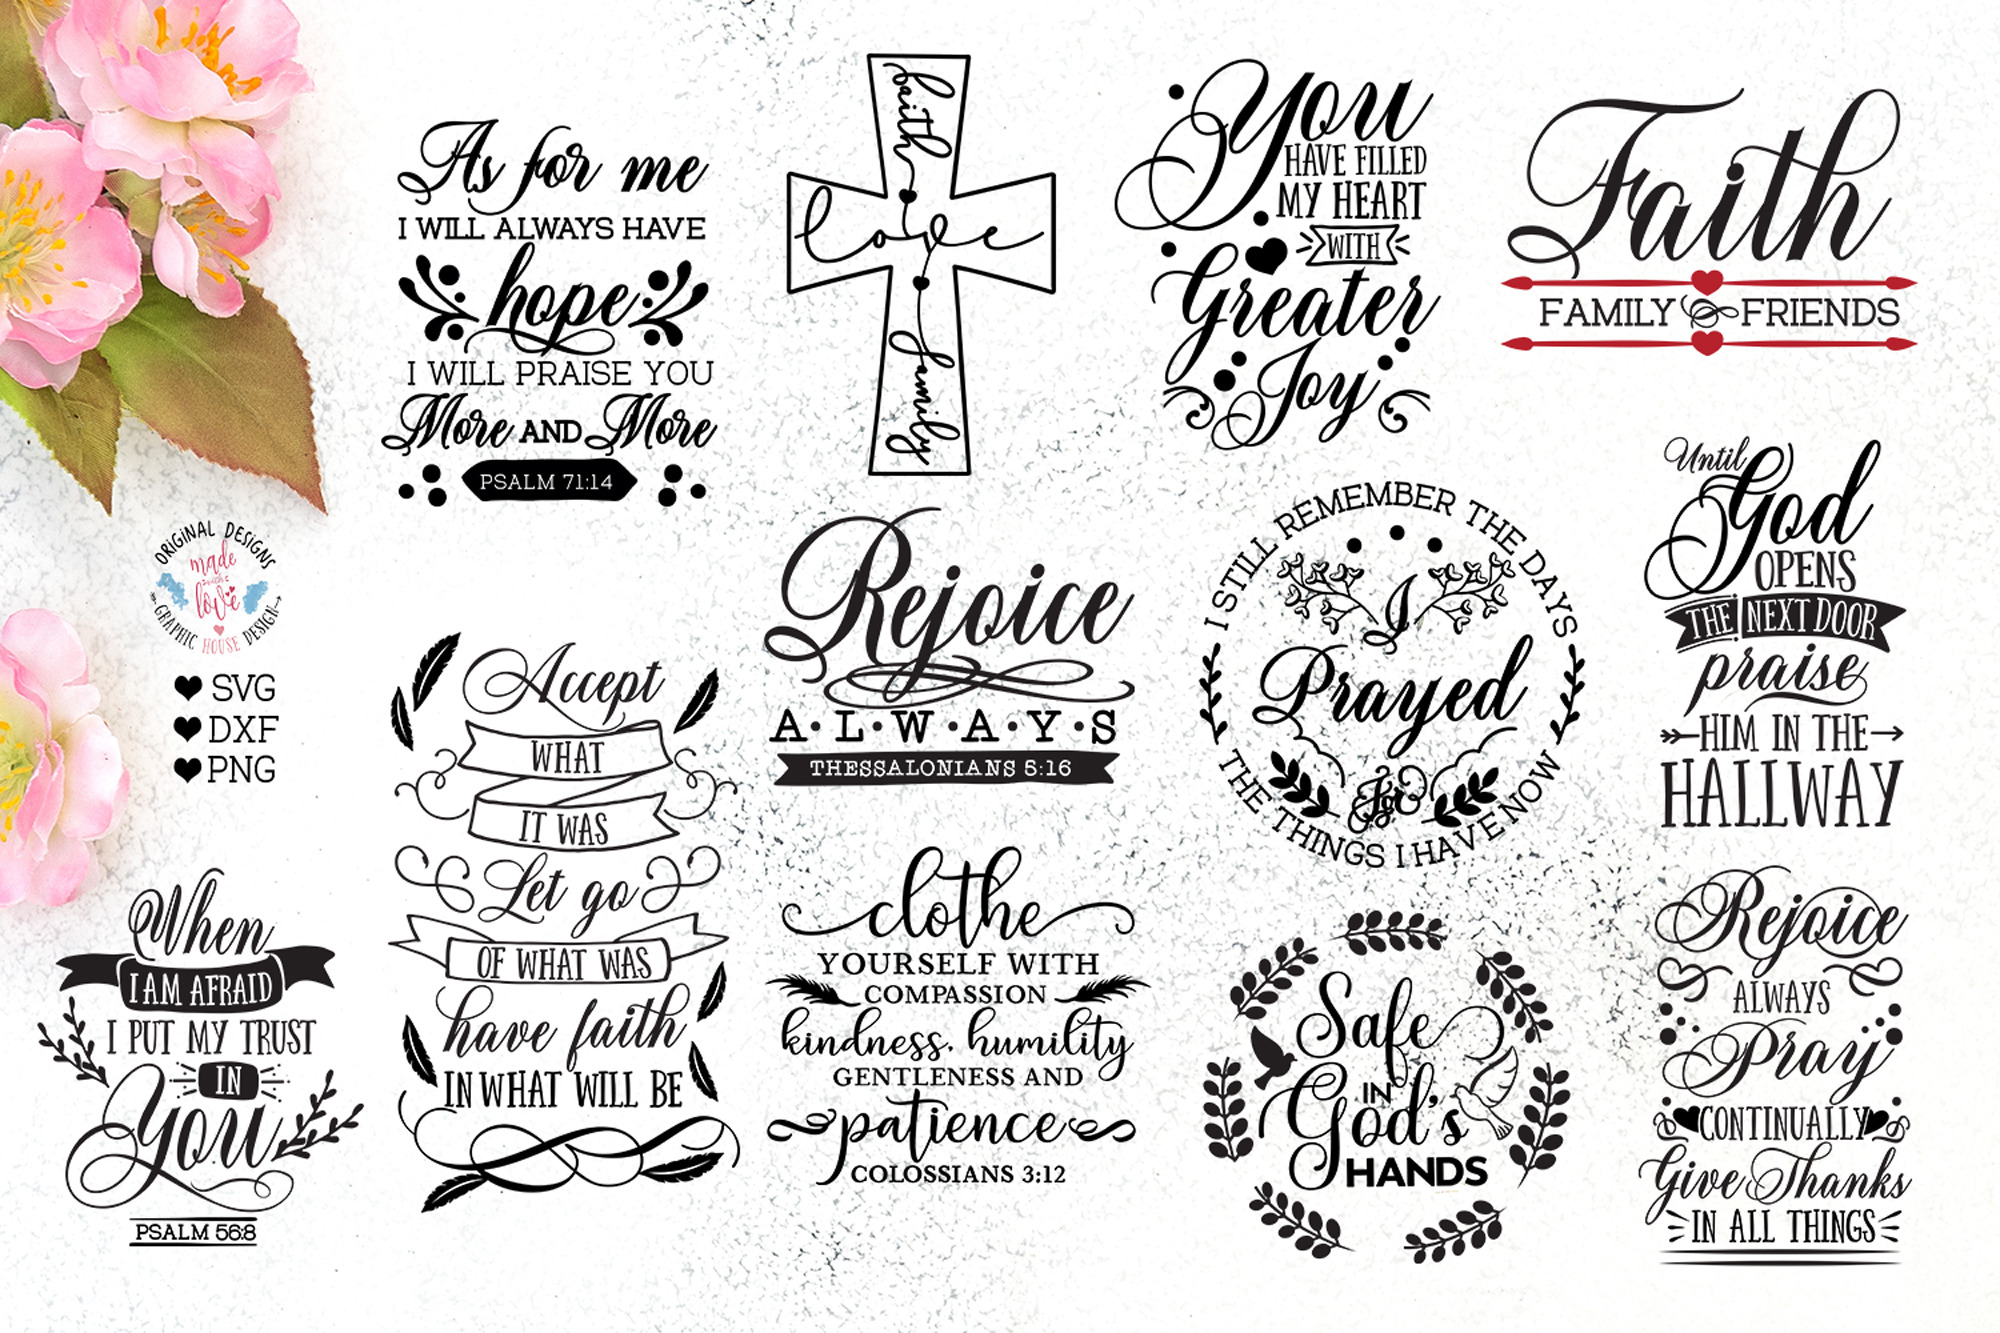 As for me
I WILL ALWAYS HAVE
hope
I WILL PRAISE YOU
More AND More
PSALM 71:14
faith
love
family
You
HAVE FILLED
MY HEART
WITH
Greater
Joy
Faith
FAMILY & FRIENDS
ORIGINAL DESIGNS
made
with
love
GRAPHIC HOUSE DESIGN
SVG
DXF
PNG
Accept
WHAT
IT WAS
Let go
OF WHAT WAS
have faith
IN WHAT WILL BE
Rejoice
A·L·W·A·Y·S
THESSALONIANS 5:16
I STILL REMEMBER THE DAYS
I
Prayed
for
THE THINGS I HAVE NOW
Until
God
OPENS
THE NEXT DOOR
praise
HIM IN THE
HALLWAY
When
I AM AFRAID
I PUT MY TRUST
IN
You
PSALM 56:8
clothe
YOURSELF WITH
COMPASSION
kindness, humility
GENTLENESS AND
patience
COLOSSIANS 3:12
Safe
IN
God's
HANDS
Rejoice
ALWAYS
Pray
CONTINUALLY
Give Thanks
IN ALL THINGS